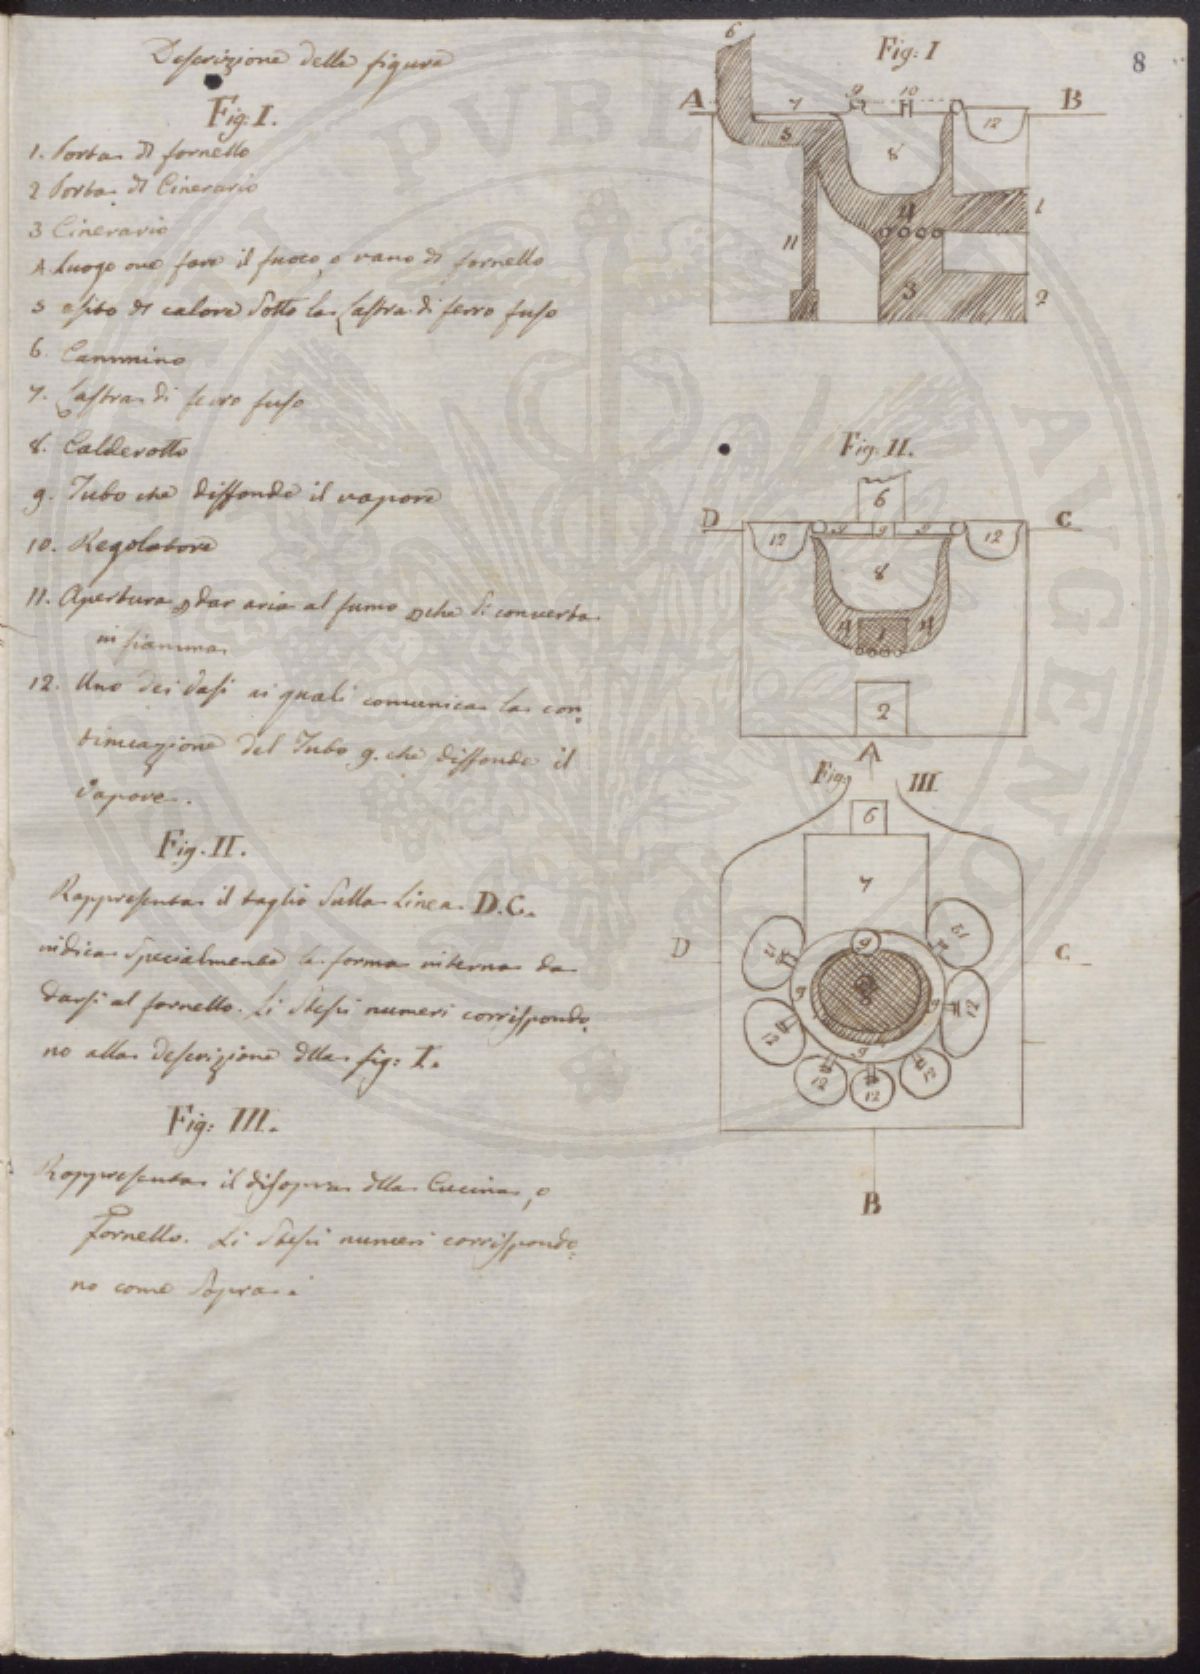 Descrizione delle figure
Fig: I.
1. Porta di fornello
2 Porta di Cinerario
3 Cinerario
4. Luogo ove fare il fuoco, o vano di fornello
5 esito di calore sotto la Lastra di ferro fuso
6. Cammino
7. Lastra di ferro fuso
8. Calderotto
9. Tubo che diffonde il vapore
10. Regolatore
11. Apertura p dar aria al fumo pche si converta
in fiamma
12. Uno dei Vasi ai quali comunica la con=
tinuazione del Tubo 9. che diffonde il
Vapore.
Fig. II.
Rappresenta il taglio sulla Linea D.C.
indica specialmente la forma interna da
darsi al fornello. Li stessi numeri corrispondo=
no alla descrizione dlla fig: I.
Fig: III.
Rappresenta il disopra dlla Cucina, o
fornello. Li stessi numeri corrispondo=
no come sopra.
8
Fig: I
6
A 7 9 10 B
5 8 12
4 1
11
3 2
Fig. II.
6
D 9 9 9 C
12 12
8
4 1 4
2
Fig: III
6
7
D 12 9 12 C
12 9 8 9 12
12 9 12
12
B
PVBLICVM
AVGENDO